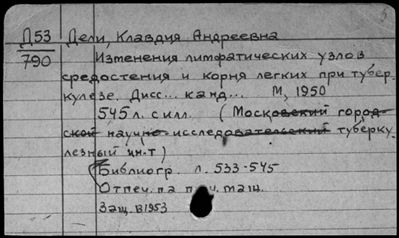 Д53 Дели, Клавдия Андреевна
790 Изменения лимфатических узлов
средостения и корня легких при тубер-
кулезе. Дисс... канд... М, 1950
545 л. с илл. (Московский город-
ской научно-исследовательский туберку
лезный ин-т)
Библиогр. л. 533-545
Отпеч. на пиш. маш.
Защ. в 1953